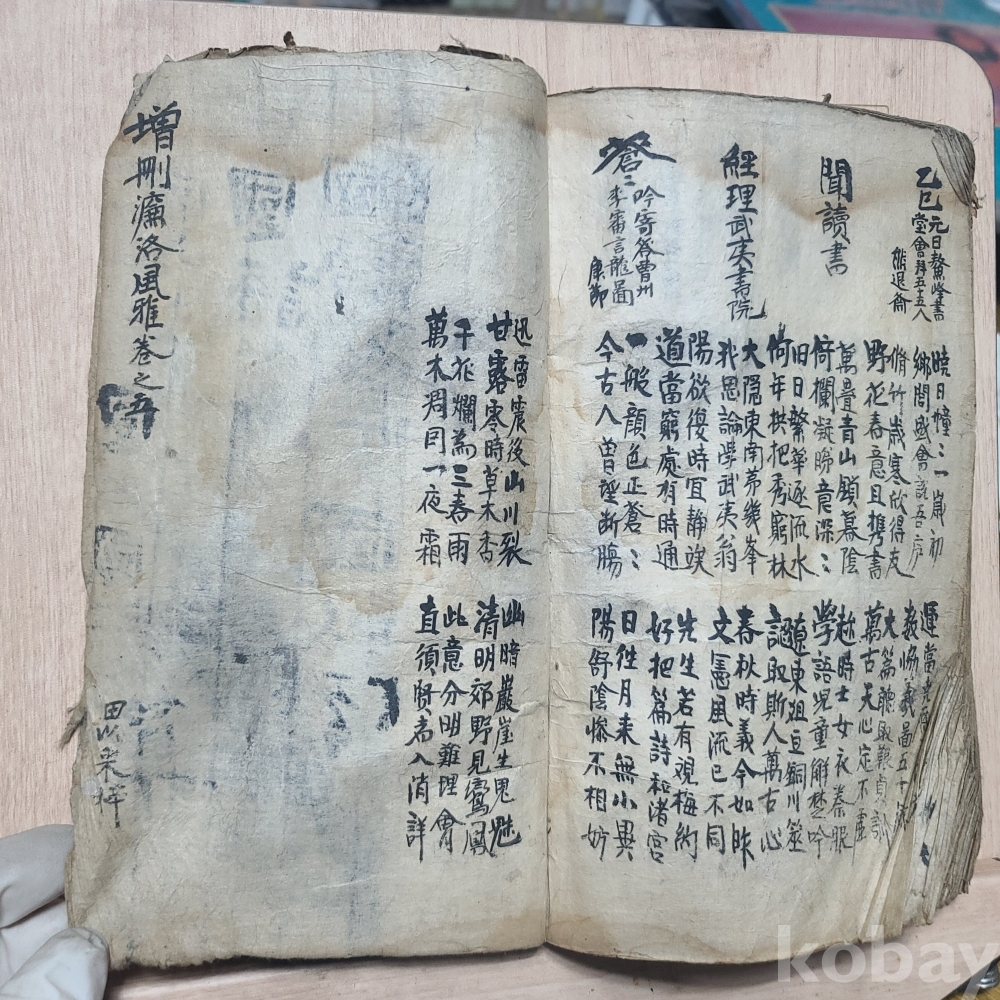 乙巳元日鰲峰書
堂會拜五十五人
熊退齋
曉日幢〻一歲初
鄉閭盛會說吾
脩竹歲寒欣得友
野花春意且携書
運當
義協羲圖五十
大篇聽取艱貞訓
萬古天心定不虛
聞讀書
萬疊青山鎖暮陰
倚欄凝睇意深〻
旧日繁華逐流水
何年拱把秀窮林
趂時士女衣春服
學語児童解楚吟
遼東俎豆銅川筮
認取斯人萬古心
經理武夷書院
大隱東南第幾峯
我思論學武夷翁
陽欲復時宜靜竢
道當窮處有時通
春秋時義今如昨
文憲風流已不同
先生若有观梅約
好把篇詩和渚宮
蒼〻
吟寄答曹州
李審言龍圖
康節
一般顏色正蒼〻
今古人曾望断膓
日徃月来無小異
陽舒陰慘不相妨
迅雷震後山川裂
甘露零時草木香
千花爛為三春雨
萬木凋因一夜霜
幽暗巖崖生鬼魅
清明郊野見鸞鳳
此意分明難理會
直須賢者入消詳
增刪濂洛風雅卷之五
kobay